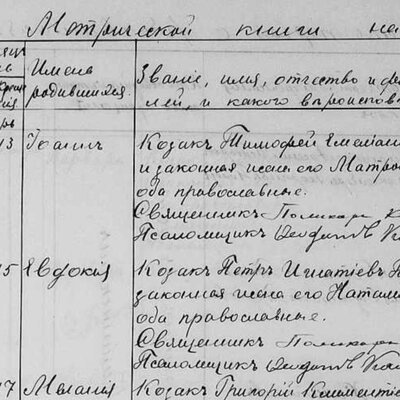 Метрической книги на
Имена
родившихся.
Званіе, имя, отчество и фа
лей, и какого вѣроиспов
13 Іоаннъ
Козакъ Тимофей Емеліан
и законная жена его Матро
оба православные.
Священникъ Поликарп К
Псаломщикъ Ѳеодотъ
15 Евдокія
Козакъ Петръ Игнатіевъ
законная жена его Наталі
оба православные.
Священникъ Поликарп
Псаломщикъ Ѳеодотъ
17 Меланія
Козакъ Григорій Климентіе